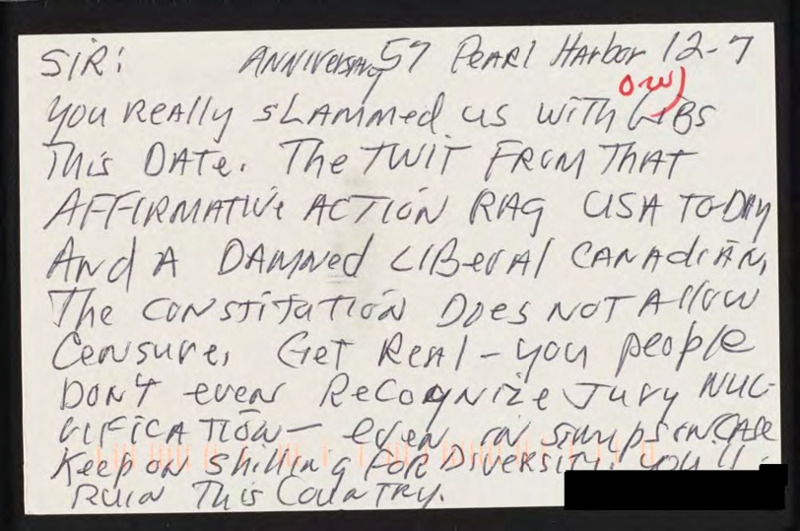 SIR: ANNIVERSARY 57 PEARL HARBOR 12-7
You REALLY SLAMMED US WITH LIBS
This DATE. The TWIT FROM THAT
AFFIRMATIVE ACTION RAG USA TODAY
And A DAMNED LIBERAL CANADIAN.
The CONSTITUTION DOES NOT ALLOW
CENSURE. Get REAL - you people
DON'T even RECOGNIZE JURY NUL-
LIFICATION - even in SIMPSON CASE
Keep on shilling FOR DIVERSITY. You'll
RUIN This COUNTRY.